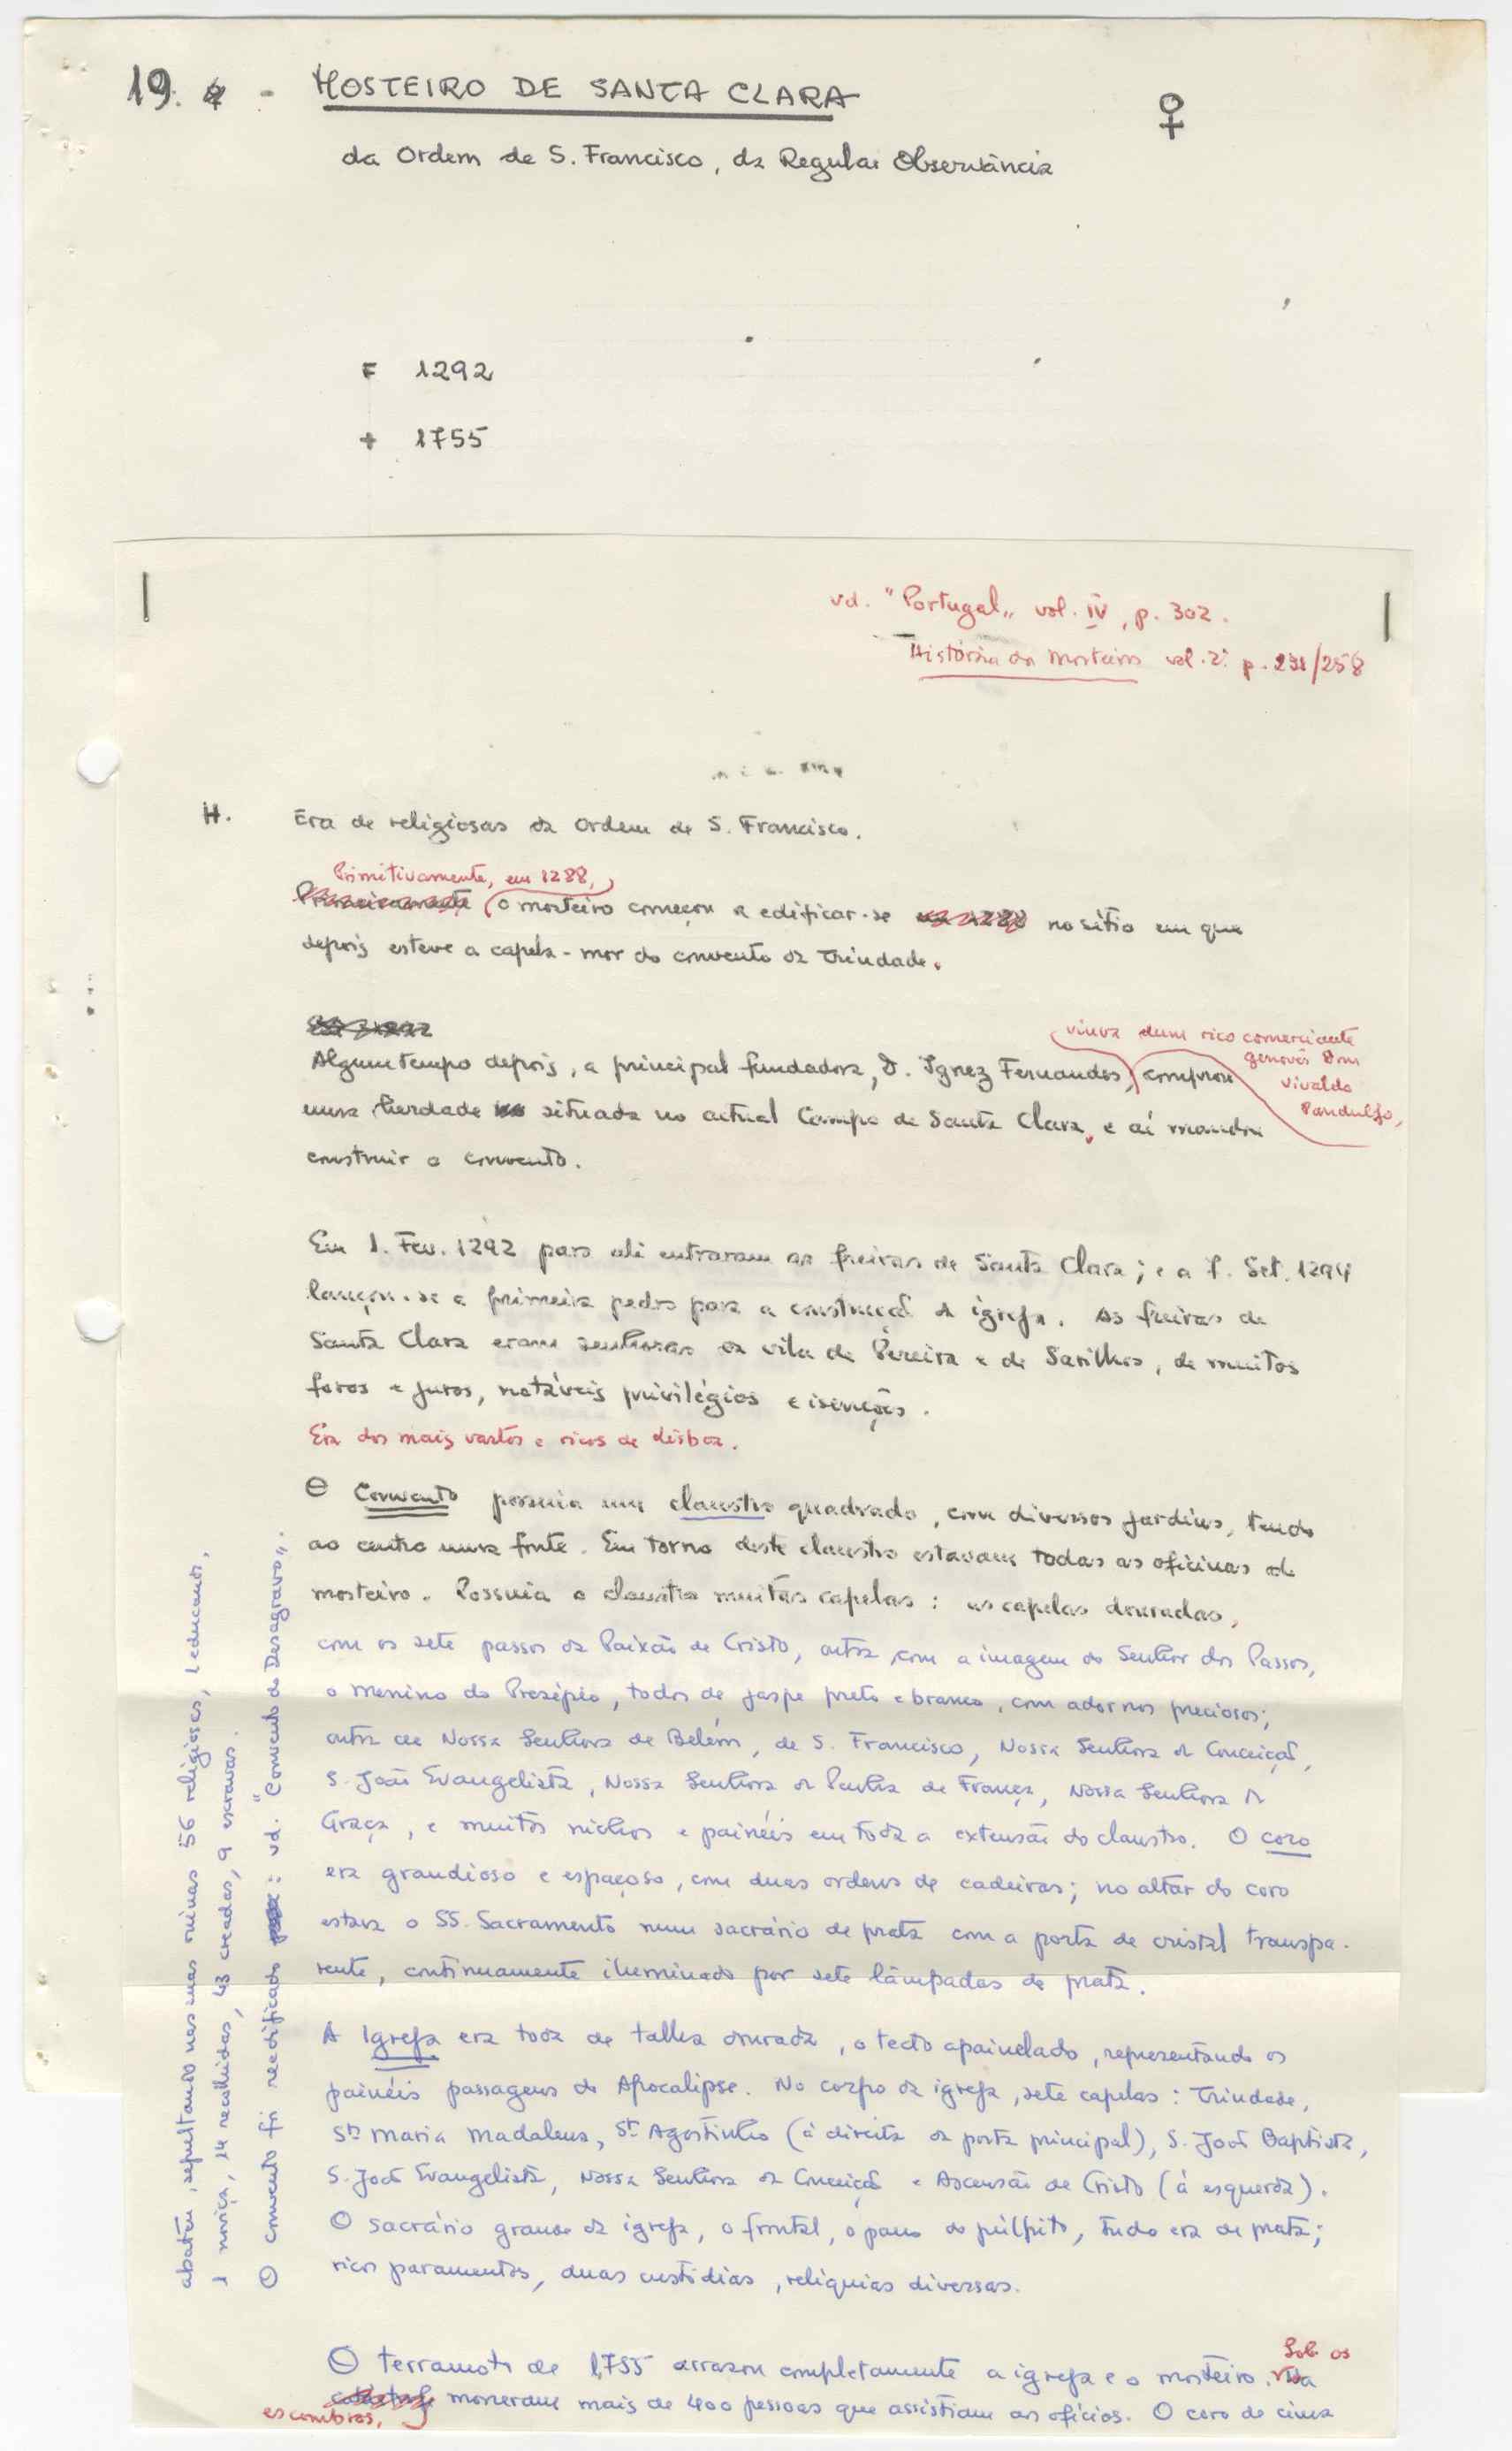 19. - MOSTEIRO DE SANTA CLARA ♀
da Ordem de S. Francisco, da Regular Observância
F 1292
+ 1755
vd. "Portugal„ vol. IV, p. 302.
História dos Mosteiros vol. 2º p. 231/258
H. Era de religiosas da Ordem de S. Francisco.
Primitivamente, em 1288,
Primeiramente o mosteiro começou a edificar-se em 1288 no sítio em que
depois esteve a capela-mor do convento da Trindade.
Em 1292
viuva dum rico comerciante
genovês Dom
Vivaldo
Pandulfo,
Algum tempo depois, a principal fundadora, D. Ignez Fernandes, comprou
uma herdade situada no actual Campo de Santa Clara, e aí mandou
construir o convento.
Em 1. Fev. 1292 para ali entraram as freiras de Santa Clara; e a 7. Set. 1294
lançou-se a primeira pedra para a construção da igreja. As freiras de
Santa Clara eram senhoras da vila de Pereira e de Sarilhos, de muitos
foros e juros, notáveis privilégios e isenções.
Era dos mais vastos e ricos de Lisboa.
O Convento possuia um claustro quadrado, com diversos jardins, tendo
ao centro uma fonte. Em torno deste claustro estavam todas as oficinas do
mosteiro. Possuia o claustro muitas capelas: as capelas douradas,
com os sete passos da Paixão de Cristo, outra com a imagem do Senhor dos Passos,
o Menino do Presépio, todos de jaspe preto e branco, com adornos preciosos;
outra de Nossa Senhora de Belém, de S. Francisco, Nossa Senhora da Conceição,
S. João Evangelista, Nossa Senhora da Penha de França, Nossa Senhora da
Graça, e muitos nichos e painéis em toda a extensão do claustro. O coro
era grandioso e espaçoso, com duas ordens de cadeiras; no altar do coro
estava o SS. Sacramento num sacrário de prata com a porta de cristal transpa-
rente, continuamente iluminado por sete lâmpadas de prata.
A Igreja era toda de talha dourada, o tecto apainelado, representando os
painéis passagens do Apocalipse. No corpo da igreja, sete capelas: Trindade,
Stª Maria Madalena, Stº Agostinho (à direita da porta principal), S. João Baptista,
S. João Evangelista, Nossa Senhora da Conceição e Ascensão de Cristo (à esquerda).
O sacrário grande da igreja, o frontal, o pano do púlpito, tudo era de prata;
ricos paramentos, duas custódias, relíquias diversas.
O terramoto de 1755 arrasou completamente a igreja e o mosteiro. Na Sob os
escombros, catástrofe morreram mais de 400 pessoas que assistiam aos ofícios. O coro de cima
abateu, sepultando nas suas ruinas 56 religiosas, 1 educanda,
1 noviça, 14 recolhidas, 43 creadas, 9 escravas.
O convento foi reedificado : vd. "Convento do Desagravo„.